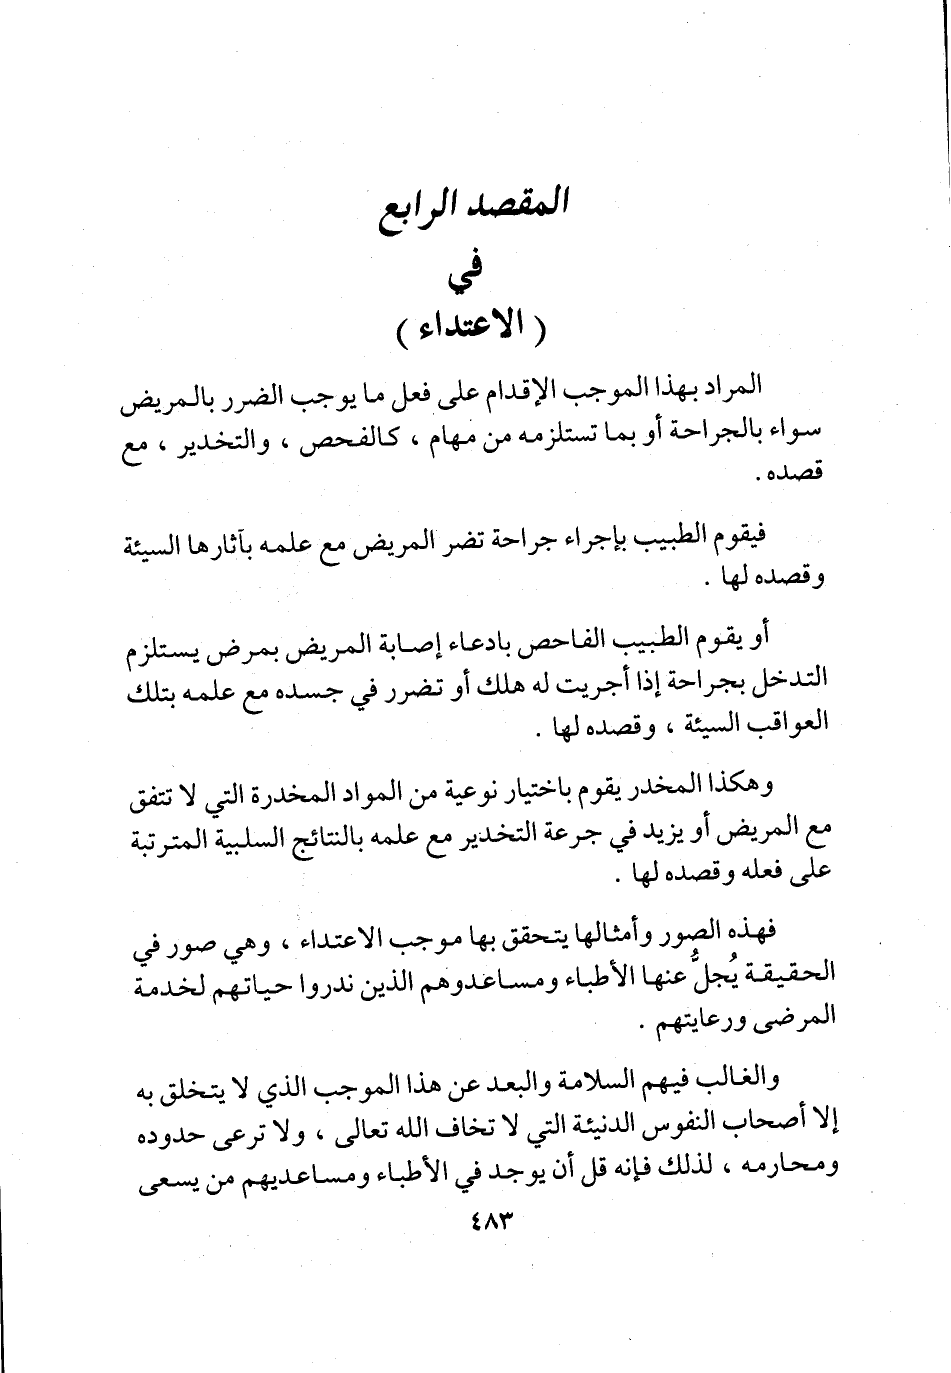 المقصد الرابع
في
( الاعتداء )
المراد بهذا الموجب الإقدام على فعل ما يوجب الضرر بالمريض
سواء بالجراحة أو بما تستلزمه من مهام ، كالفحص ، والتخدير ، مع
قصده .
فيقوم الطبيب بإجراء جراحة تضر المريض مع علمه بآثارها السيئة
وقصده لها .
أو يقوم الطبيب الفاحص بادعاء إصابة المريض بمرض يستلزم
التدخل بجراحة إذا أجريت له هلك أو تضرر في جسده مع علمه بتلك
العواقب السيئة ، وقصده لها .
وهكذا المخدر يقوم باختيار نوعية من المواد المخدرة التي لا تتفق
مع المريض أو يزيد في جرعة التخدير مع علمه بالنتائج السلبية المترتبة
على فعله وقصده لها .
فهذه الصور وأمثالها يتحقق بها موجب الاعتداء ، وهي صور في
الحقيقة يُجلُّ عنها الأطباء ومساعدوهم الذين ندروا حياتهم لخدمة
المرضى ورعايتهم .
والغالب فيهم السلامة والبعد عن هذا الموجب الذي لا يتخلق به
إلا أصحاب النفوس الدنيئة التي لا تخاف الله تعالى ، ولا ترعى حدوده
ومحارمه ، لذلك فإنه قل أن يوجد في الأطباء ومساعديهم من يسعى
٤٨٣